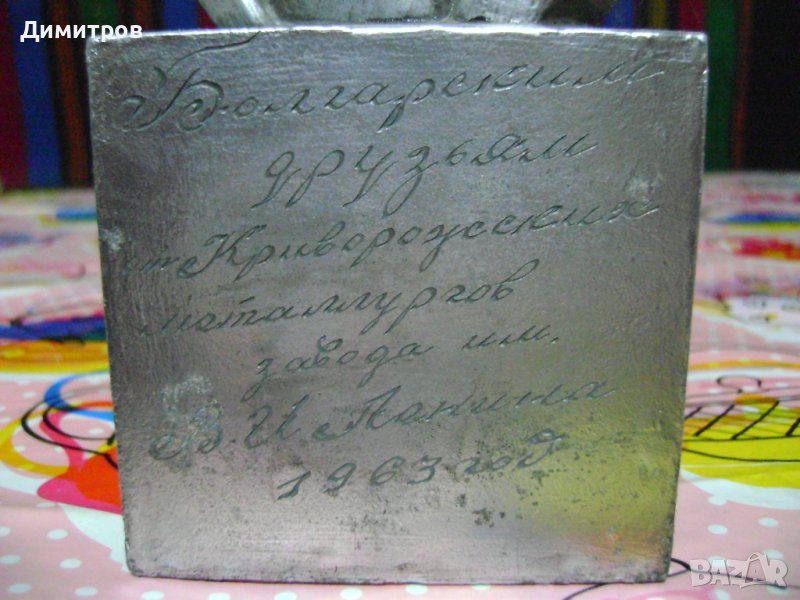 Димитров
Болгарским
друзьям
от Криворожских
металлургов
завода им.
В.И Ленина
1963 год
BAZAR